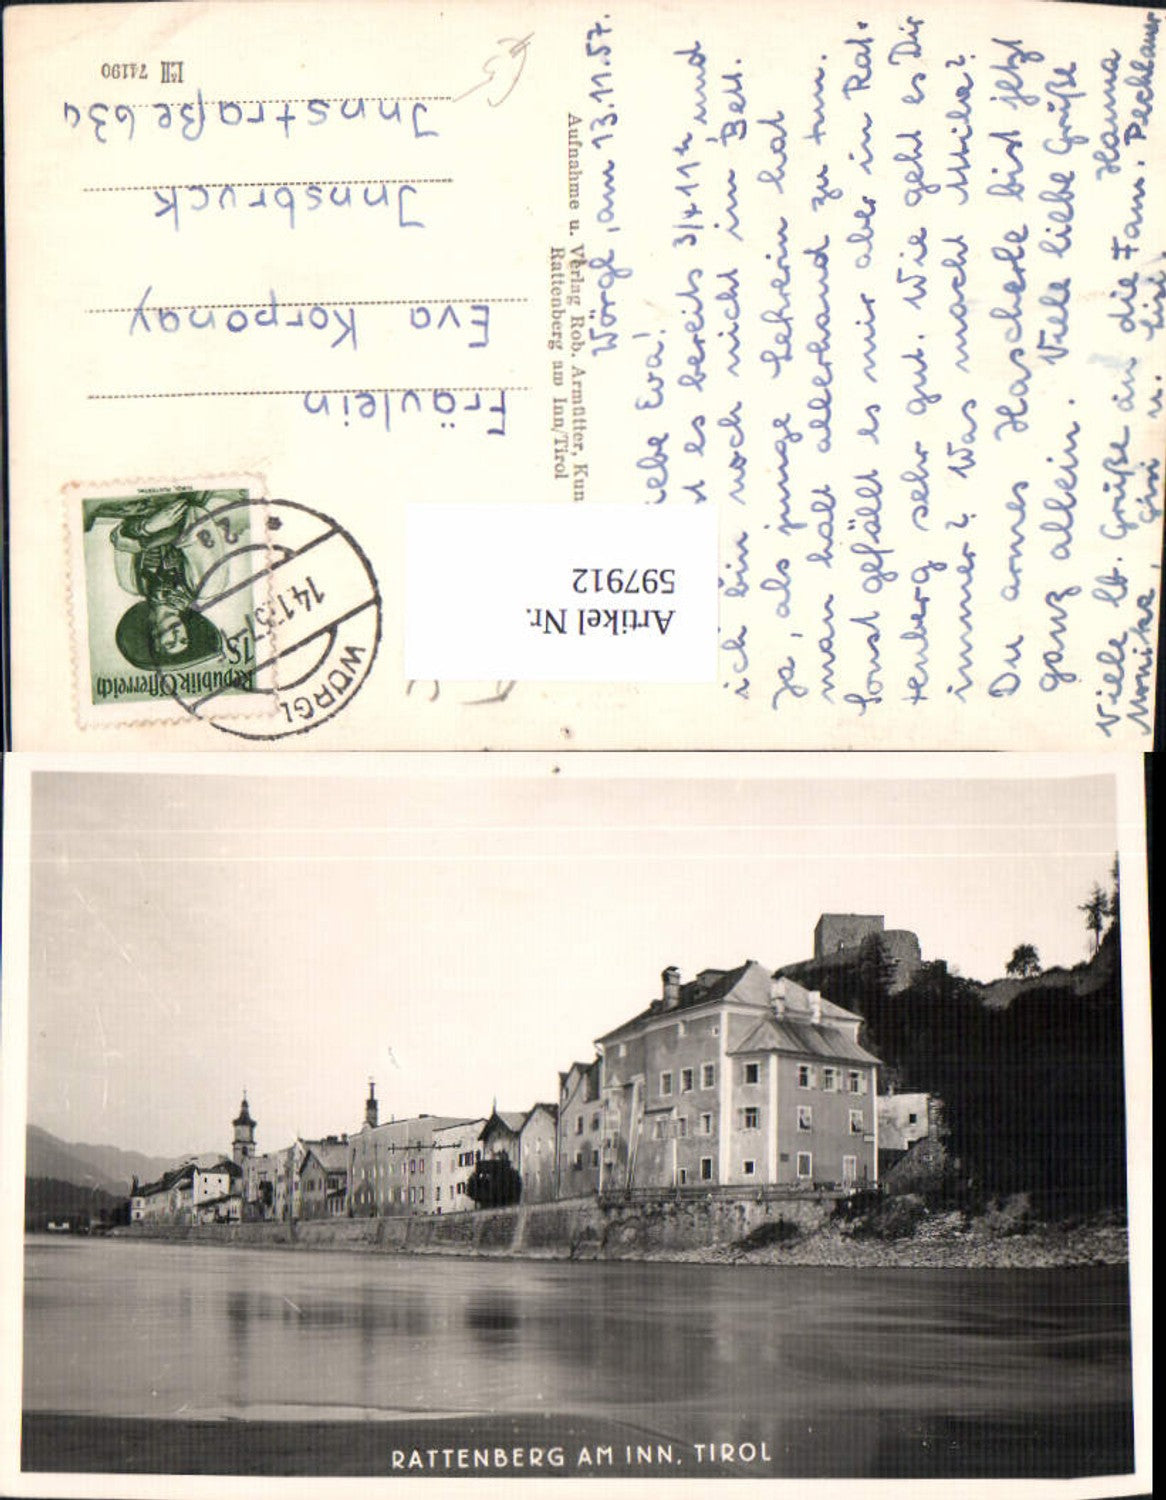 Wörgl, am 13.11.57.
iebe Eva!
t es bereits 3/4 11h und
ich bin noch nicht im Bett.
Ja, als junge Lehrerin hat
man halt allerhand zu tun.
Sonst gefällt es mir aber in Rat-
tenberg sehr gut. Wie geht es Dir
immer? Was macht Miha?
Du armes Hascherle bist jetzt
ganz allein. Viele liebe Grüße
Hanna
Viele lb. Grüße an die Fam. Pechlaner
Monika, Gisi u. Lisl.
Aufnahme u. Verlag Rob. Armütter, Kun
Rattenberg am Inn/Tirol
Fräulein
Eva Korponay
Innsbruck
Innstraße 63a
I&II 74190
Republik Österreich
1S
WÖRGL
14.11.57
2a
Artikel Nr.
597912
RATTENBERG AM INN, TIROL